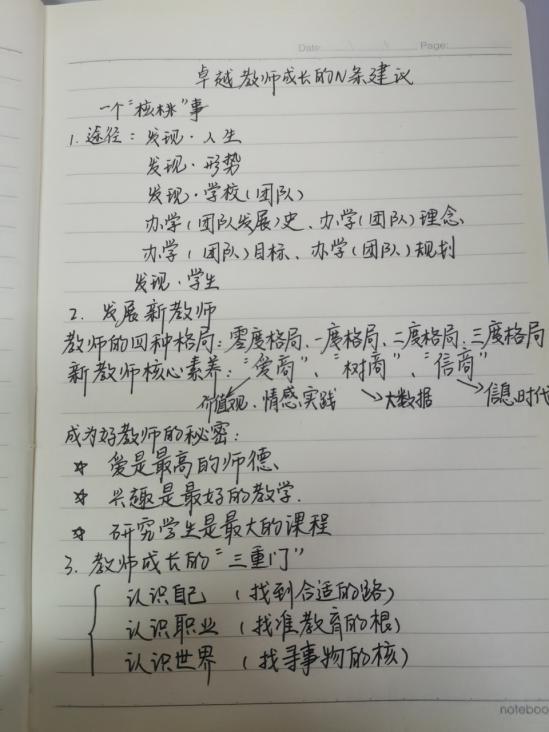 Date: / / Page:
卓越教师成长的N条建议
一个"核桃"事
1. 途径：发现·人生
发现·形势
发现·学校（团队）
办学（团队发展）史、办学（团队）理念、
办学（团队）目标、办学（团队）规划
发现·学生
2. 发展新教师
教师的四种格局：零度格局、一度格局、二度格局、三度格局
新教师核心素养："爱商"、"树商"、"信商"
价值观、情感、实践 大数据 信息时代
成为好教师的秘密：
☆ 爱是最高的师德、
☆ 兴趣是最好的教学.
☆ 研究学生是最大的课程
3. 教师成长的"三重门"
认识自己（找到合适的路）
认识职业（找准教育的根）
认识世界（找寻事物的核）
noteboo